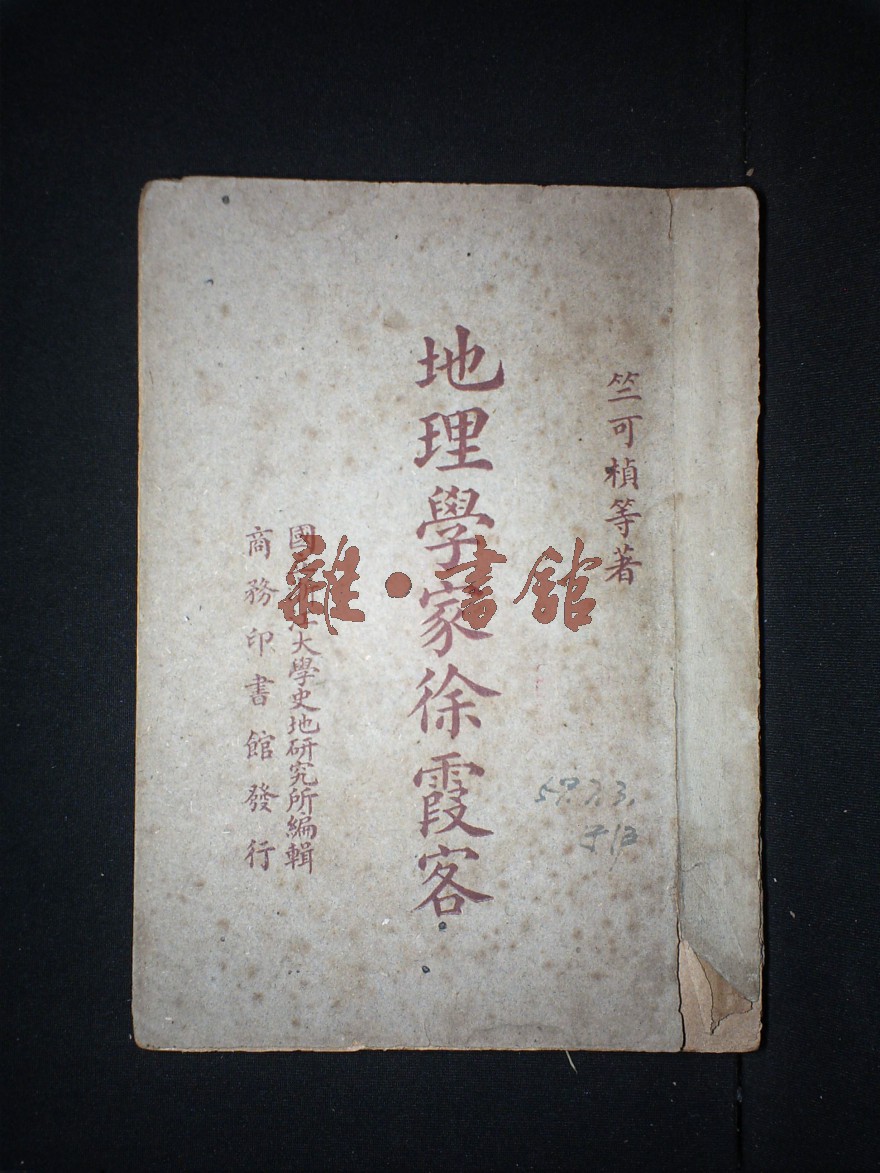 竺可楨等著
地理學家徐霞客
國立浙江大學史地研究所編輯
商務印書館發行
雜·書館
57.7.3.